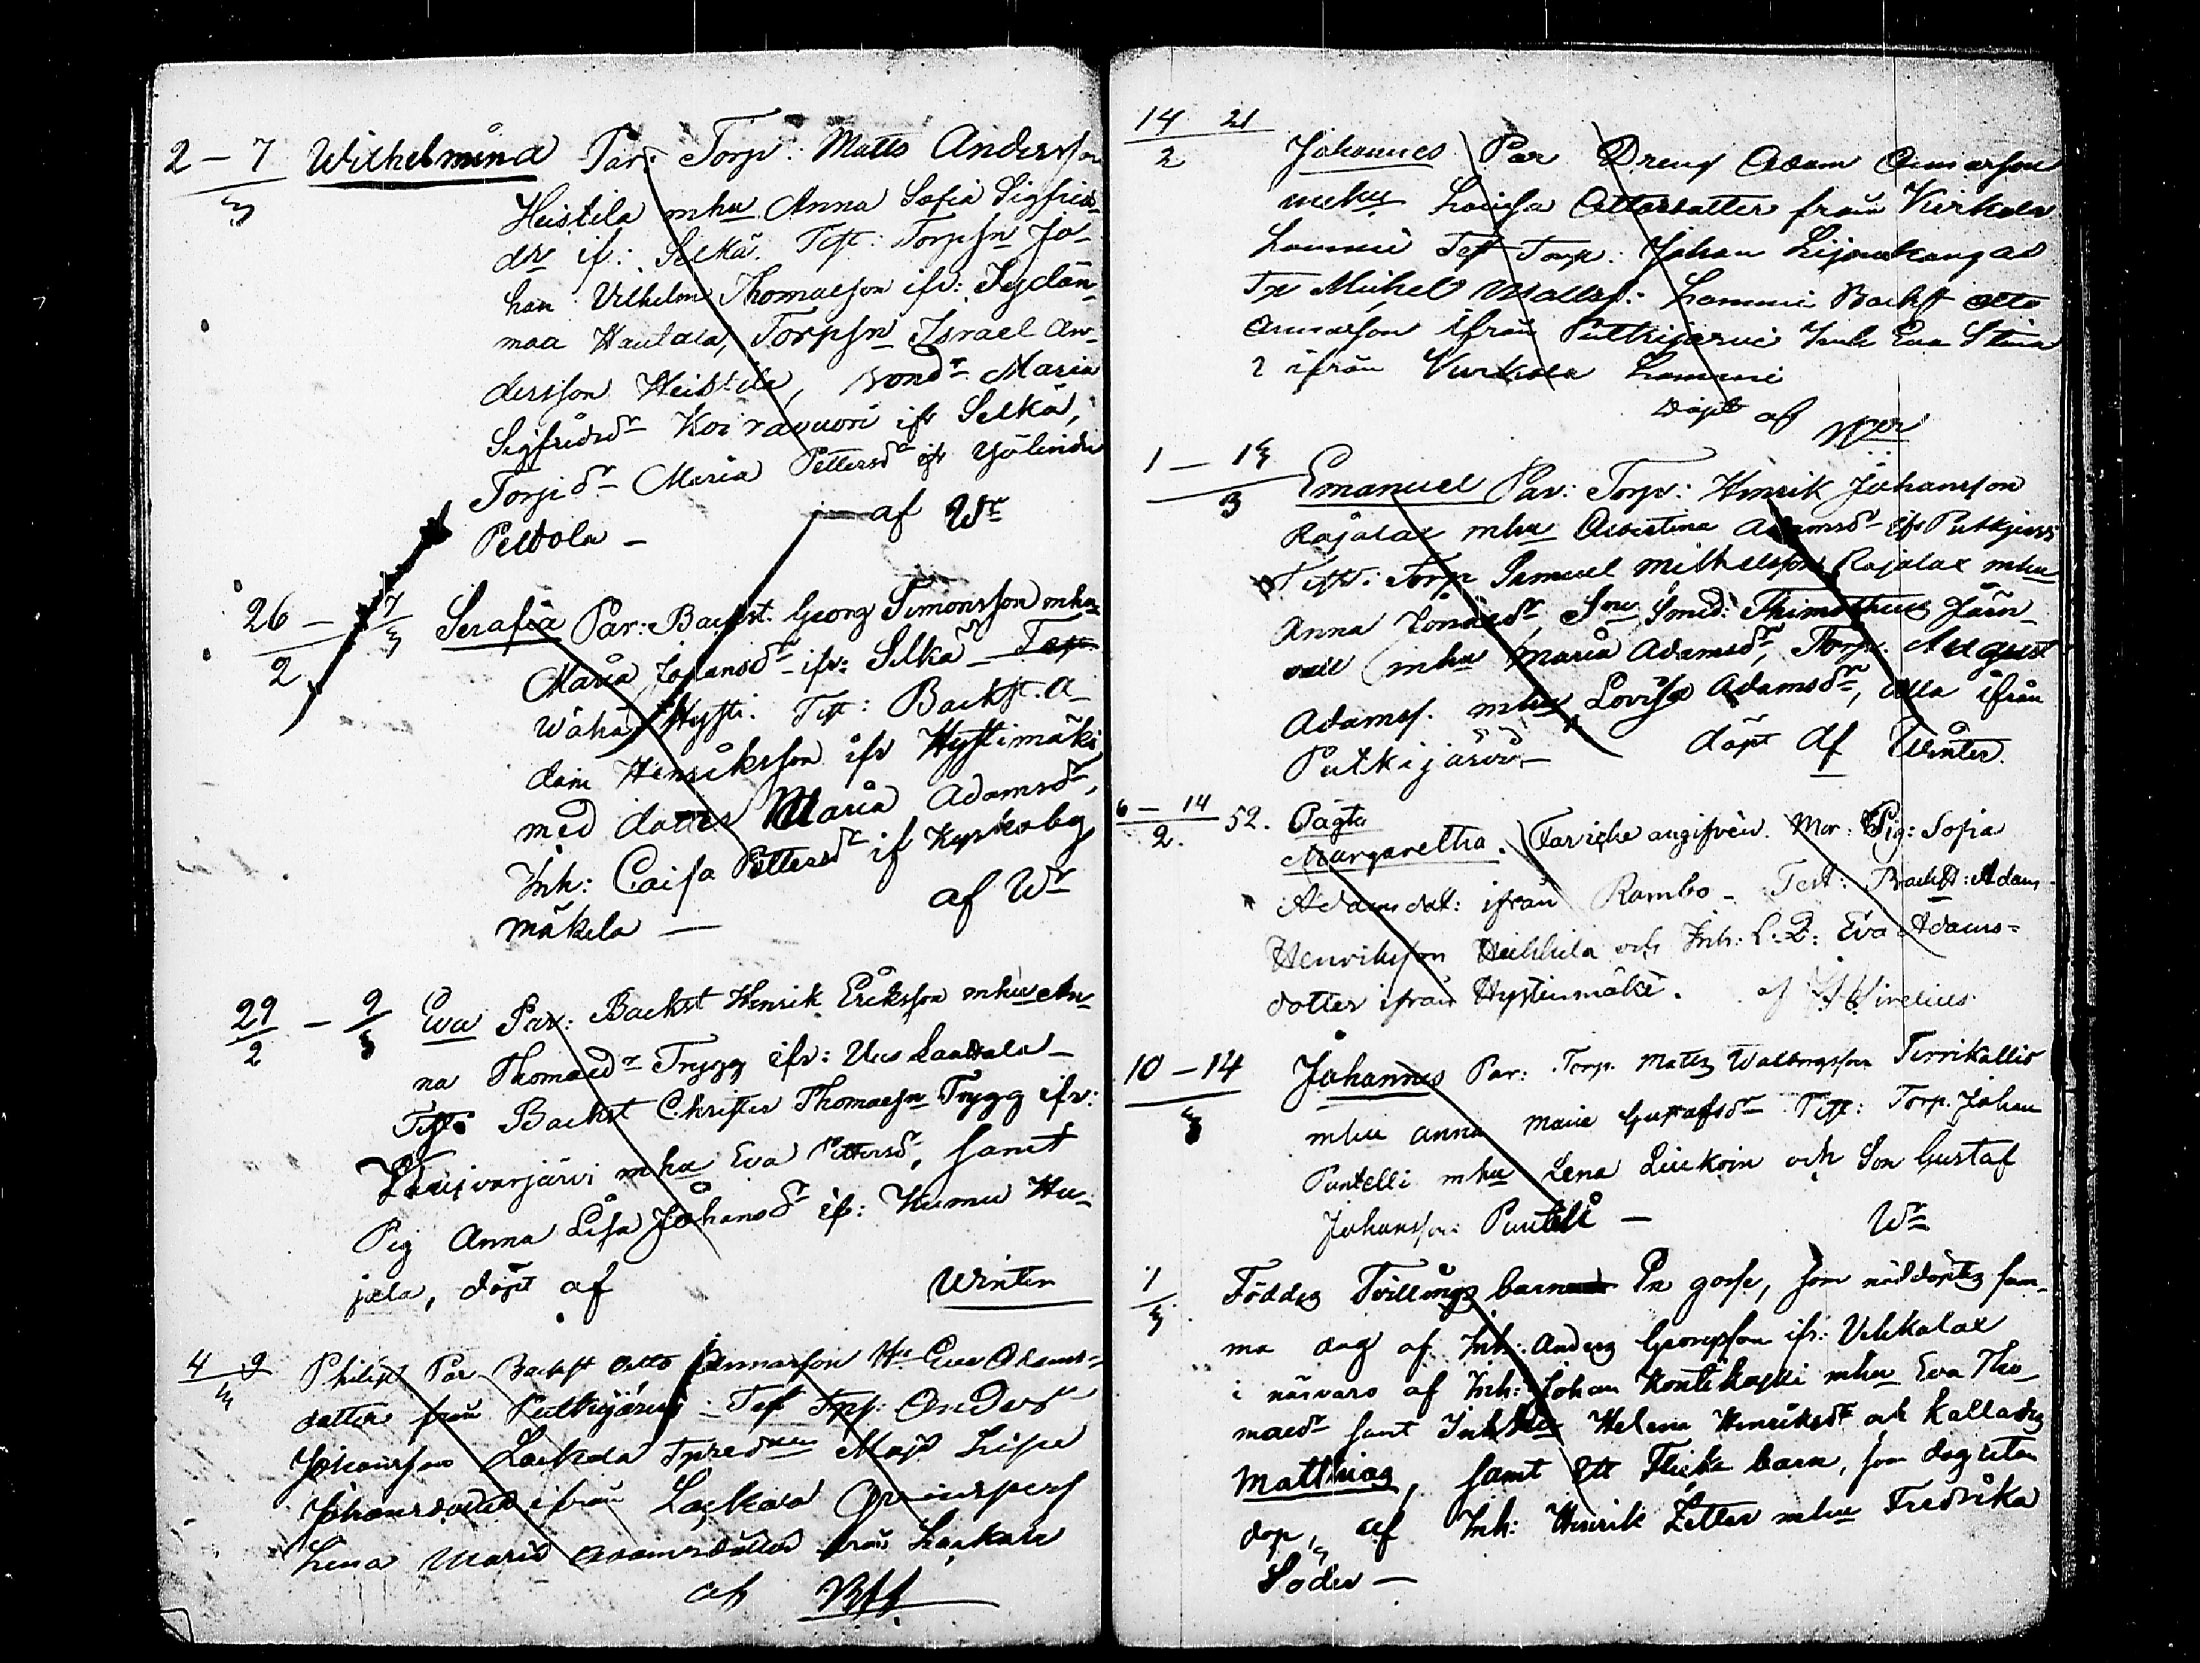 2 – 7 Wilhelmina Par: Torp: Matts Andersson
3
Heistila mhu Anna Sofia Sigfrids-
dr if: Selkä. Test: Torpsn Jo-
han Vilhelm Thomasson ifr: Sydän-
maa Hautala, Torpsn Israel An-
dersson Heistila, Bondr Maria
Sigfridsdr Koiravuori ifr Selkä,
Torpdr Maria Pettersdr ifr Yölinde
Peltola – af Wr
26 – 7 Serafia Par: Backst. Georg Simonsson mhu
2 3
Maria Johansdr ifr: Selkä – Torp
Wäha Hysti. Test: Backst. A-
dam Henriksson ifr Hystimäki
med dotter Maria Adamsdr,
Inh: Caisa Pettersdr if Kyrkoby
mäkela – af Wr
29 – 9 Eva Par: Backst Henrik Eriksson mhu An-
2 3
na Thomasdr Trygg ifr: Uus
Test: Backst Christer Thomassn Trygg ifr:
mhu Eva Pettersdr, samt
Pig Anna Lisa Johansdr if: Kumu Hu-
jala, döpt af Winter
4 9 Philip Par Backst Otto Annarson Hu Eva Adams-
3
dotter från Putkijärvi Test Anders
Johansson Laskala Maja Lisa
Johansdotter ifrån Laskala
Lena Maria Adamsdotter från Laskala
af
14 21
2
Johannes Par Dreng Adam Annarson
mhu Lovisa Ottosdotter från Kirkola
Lammi Test Torp: Johan Lijonkangas
Mickel Matts: Lammi Backst Otto
Annarson ifrån Putkijarvi Inh Eva Stina
ifrån Kirkola Lammi
Döpt af Wr
1 – 14
3
Emanuel Par: Torp: Henrik Johansson
Rajalax mhu Albertina Adamsdr ifr Putkjerv
Test: Torp Samuel Mikhelsson Rajalax mhu
Anna Jönnsdr, Smed: Thimotheus Järn-
vall mhu Maria Adamsdr, Torp. August
Adamss. mhu Lovisa Adamsdr, alla ifrån
Putkijärvi – döpt af Winter.
6 – 14 52. Oägta
2.
Margaretha. Far icke angifven. Mor: Pig: Sofia
Adamsdot: ifrån Rambo – Test: Backst: Adam
Henriksson Heikkila och Inh: Eva Adams=
dotter ifrån Hystenmäki. af Sirelius
10 – 14 Johannes Par: Torp. Matts Walborgsson Tervikallio
3
mhu Anna Maria Gustafsdr Test: Torp. Johan
Puntelli mhu Lena Liukoin och Son Gustaf
Johansson Puntelli – Wr
1 Föddes Tvillings barn En gosse, som nöddöptes sam-
3
ma dag af Inh: Anders Georgsson ifr: Uhkalax
i närvaro af Inh: Johan Kontikoski mhu Eva Tho-
masdr samt Helena Henriksdr och kallades
Matthias, samt Ett Flicke barn, som dog utan
dop, af Inh: Henrik Zetter mhu Fredrika
Söder –